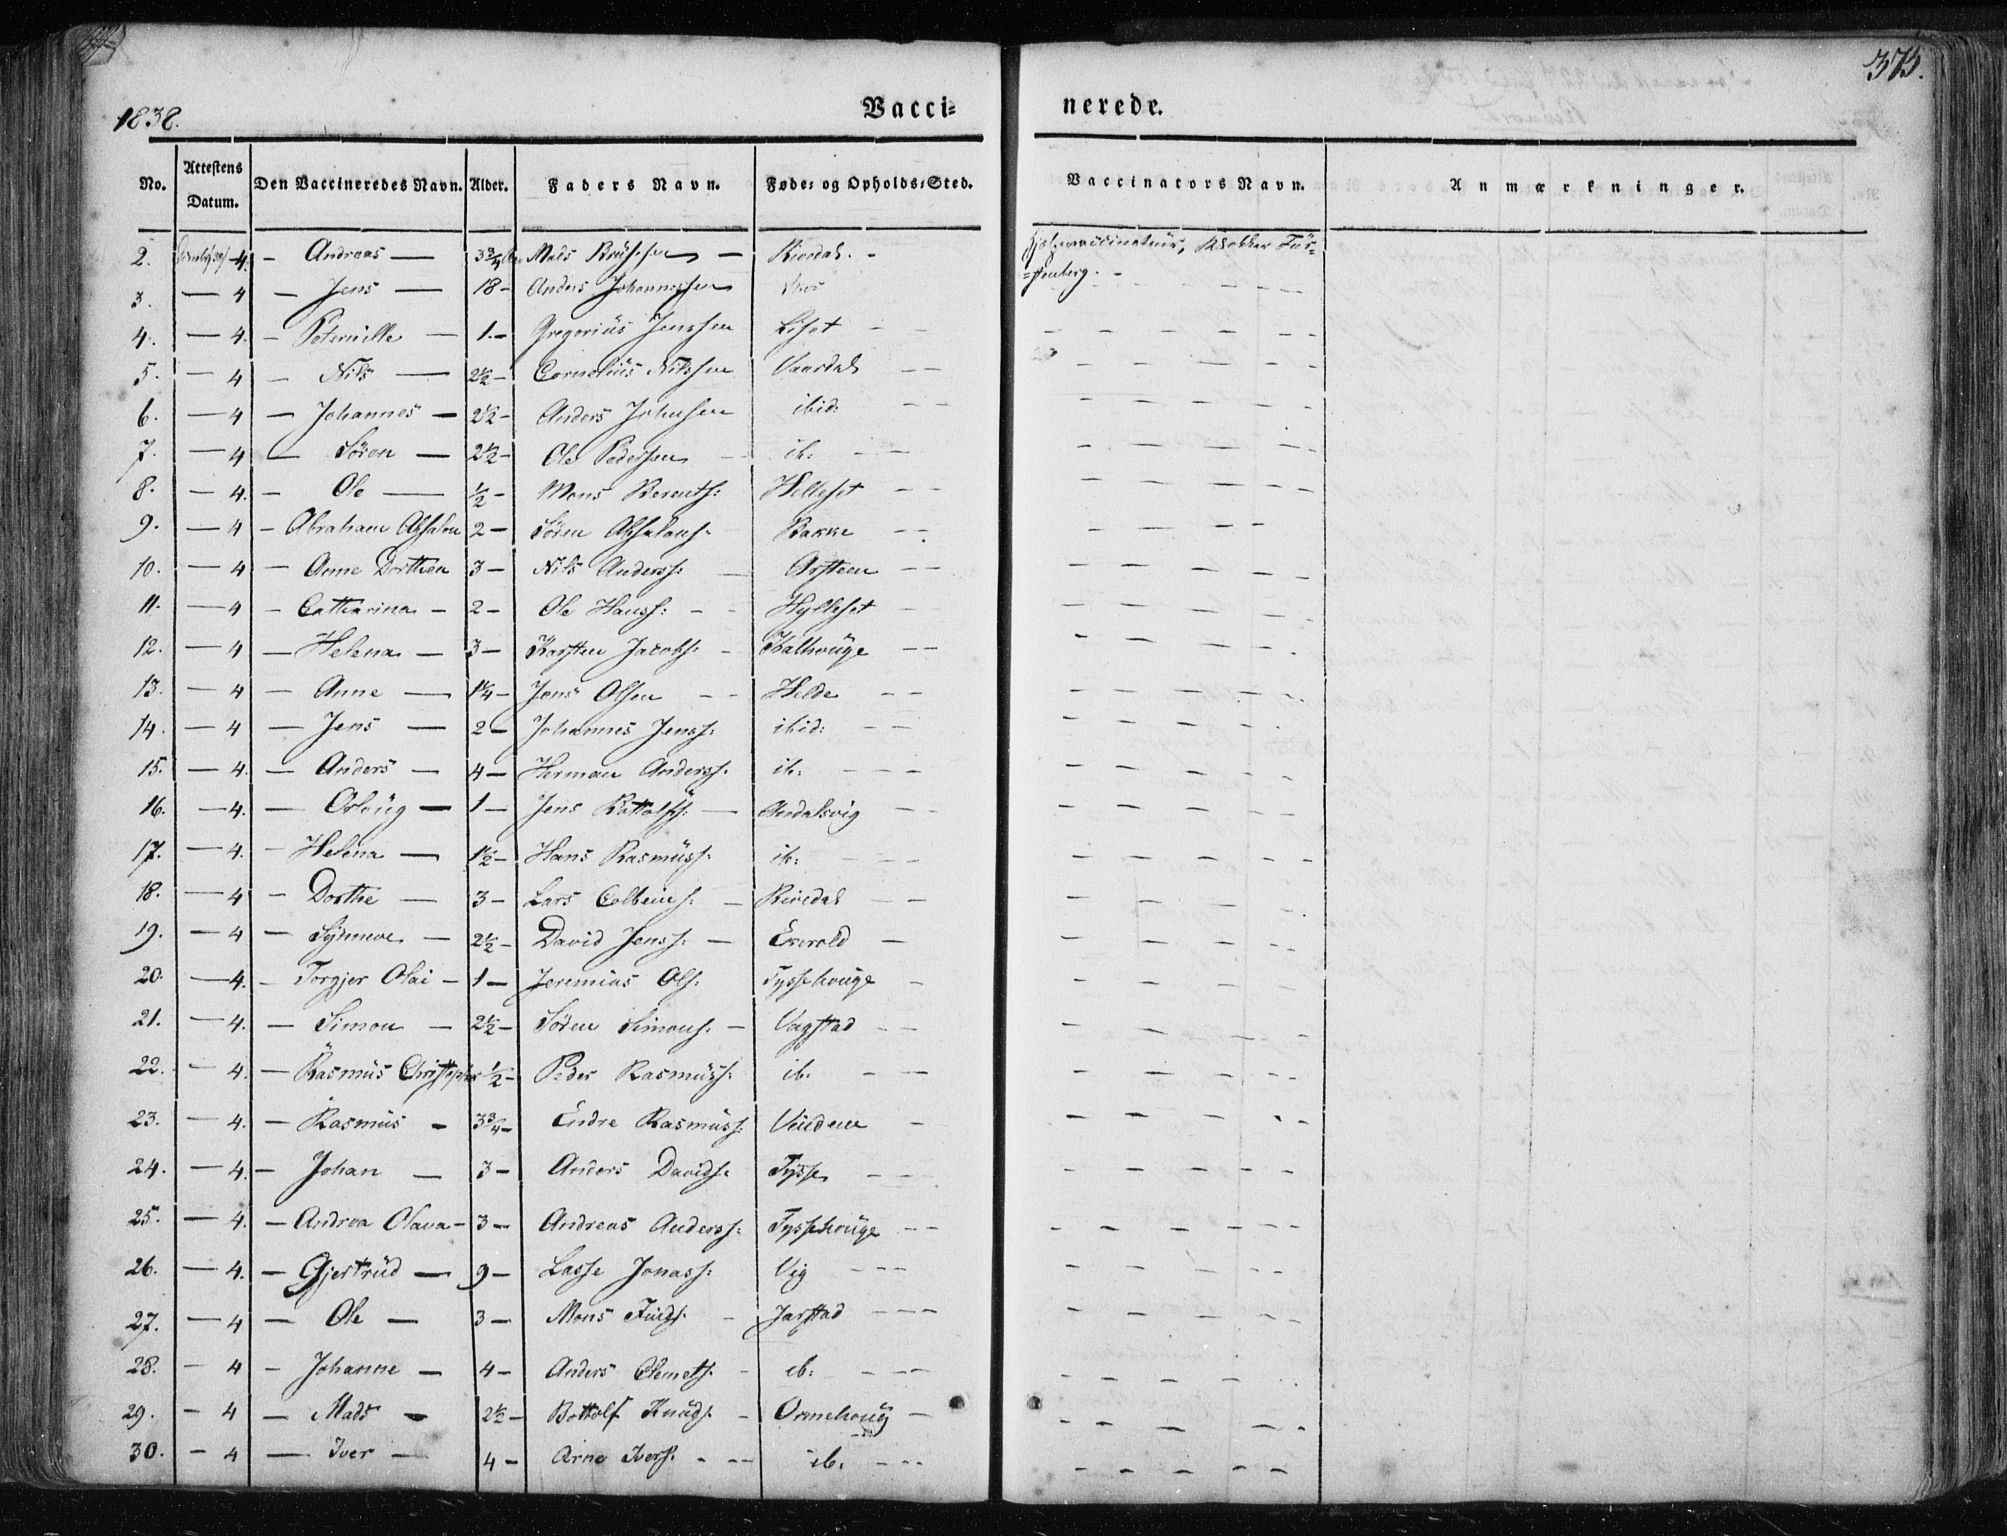 375.
1838.
Vacci= nerede.
No. Attestens Datum. Den Vaccineredes Navn. Alder. Faders Navn. Føde= og Opholds=Sted. Vaccinators Navn. Anmærkninger.
2. 4. - Andreas — 3 3/4 Mads — Rivedal. - Hjelpevaccinateur, Klokker Für-
=stenberg. -
3. — 4 — Jens — 18 - Anders Johannessen
4. — 4. — Peternille — 1. - Gregorius Jenssen Liset - -
5. — 4 — Nils — 2 1/2 - Cornelius Nilssen Vaardal - -
6. — 4 — Johannes — 2 1/2 - Anders Johnsen ibid: - -
7. — 4 — Søren — 2 1/2 - Ole Pedersen - ib: - -
8. — 4. — Ole — 1/2 - Mons Berents: Helleset - -
9. — 4 — Abraham Absalon 2 - Søren Absalons: Bakke - -
10. — 4 — Anne Dorthea 3 - Nils Anderss: - Arsteen - -
11. — 4 — Catharina - 2 - Ole Hanss: - - Hylleset -
12. — 4 — Helena — 3 - Karsten Jacobs: - Kalhouge - -
13. — 4 — Anne — 1 1/4 - Jens Olsen - - Helde - -
14. — 4 — Jens — 2 - Johannes Jenss: ibid: - -
15. — 4. — Anders — 4 - Herman Anderss: ib: - - -
16. — 4. — Orloug — 1 - Jens Bottolfs: — Aadalsvig - -
17. — 4. — Helena — 1 1/2 - Hans Rasmuss: ib: - - -
18. — 4 — Dorthe — 3 - Lars Colbeins: - Rivedal - -
19. — 4 — Synneve — 2 1/2 - David Jenss: — -
20. — 4. — Torgjer Olai - 1 - Jeremias Ols: Tyssehouge -
21. — 4. — Simon — 2 1/2 - Søren Simons: — Vagstad - -
22. — 4. — Rasmus Christopher 1/2 - Peder Rasmuss: ib. - - -
23. — 4. — Rasmus - 3 3/4 - Endre Rasmuss: -
24. — 4. — Johan — 3 - Anders Davids. Tysse - - -
25. — 4. — Andrea Olava - 3 - Andreas Anderss: Tyssehouge - -
26. — 4. — Gjertrud — 9 - Lasse Jonass: Vig - - -
27. — 4 — Ole — 3 - Mons - Jarstad - - -
28. — 4 — Johanne — 4 - Anders Clemets. - ib: - - -
29. - 4 — Mads - 2 1/2 - Bottolf Knuds. - Ormehoug -
30. - 4 — Iver — 4 - Arne Ivers. - - - ib: - - -